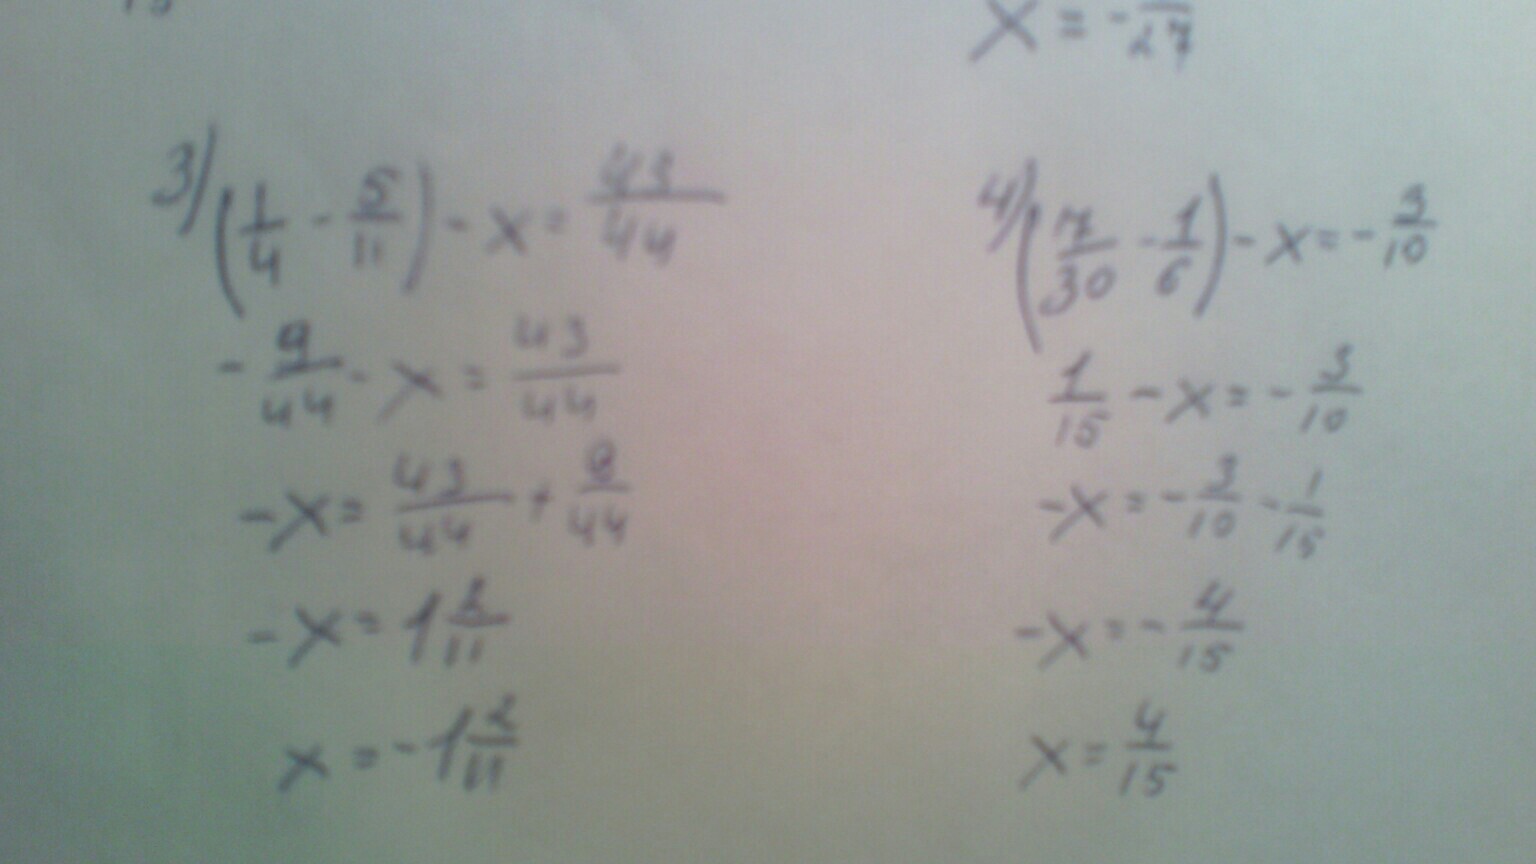 x = - /27
3) (1/4 - 5/11) - x = 43/44
- 9/44 - x = 43/44
- x = 43/44 + 9/44
- x = 1 2/11
x = - 1 2/11
4) (7/30 - 1/6) - x = - 3/10
1/15 - x = - 3/10
- x = - 3/10 - 1/15
- x = - 4/15
x = 4/15